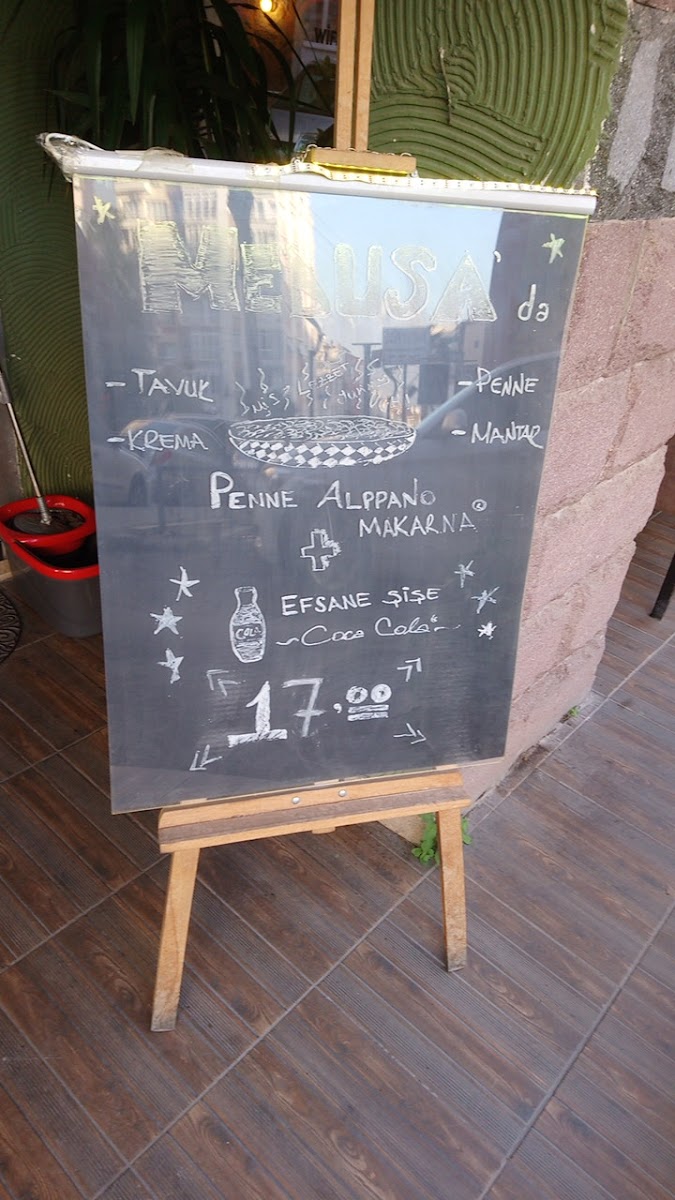 WIF
MEDUSA' da
- TAVUK
- KREMA
- PENNE
- MANTAR
PENNE ALPPANO
MAKARNA
+
COLA
EFSANE ŞİŞE
~ Coca Cola ~
17,00